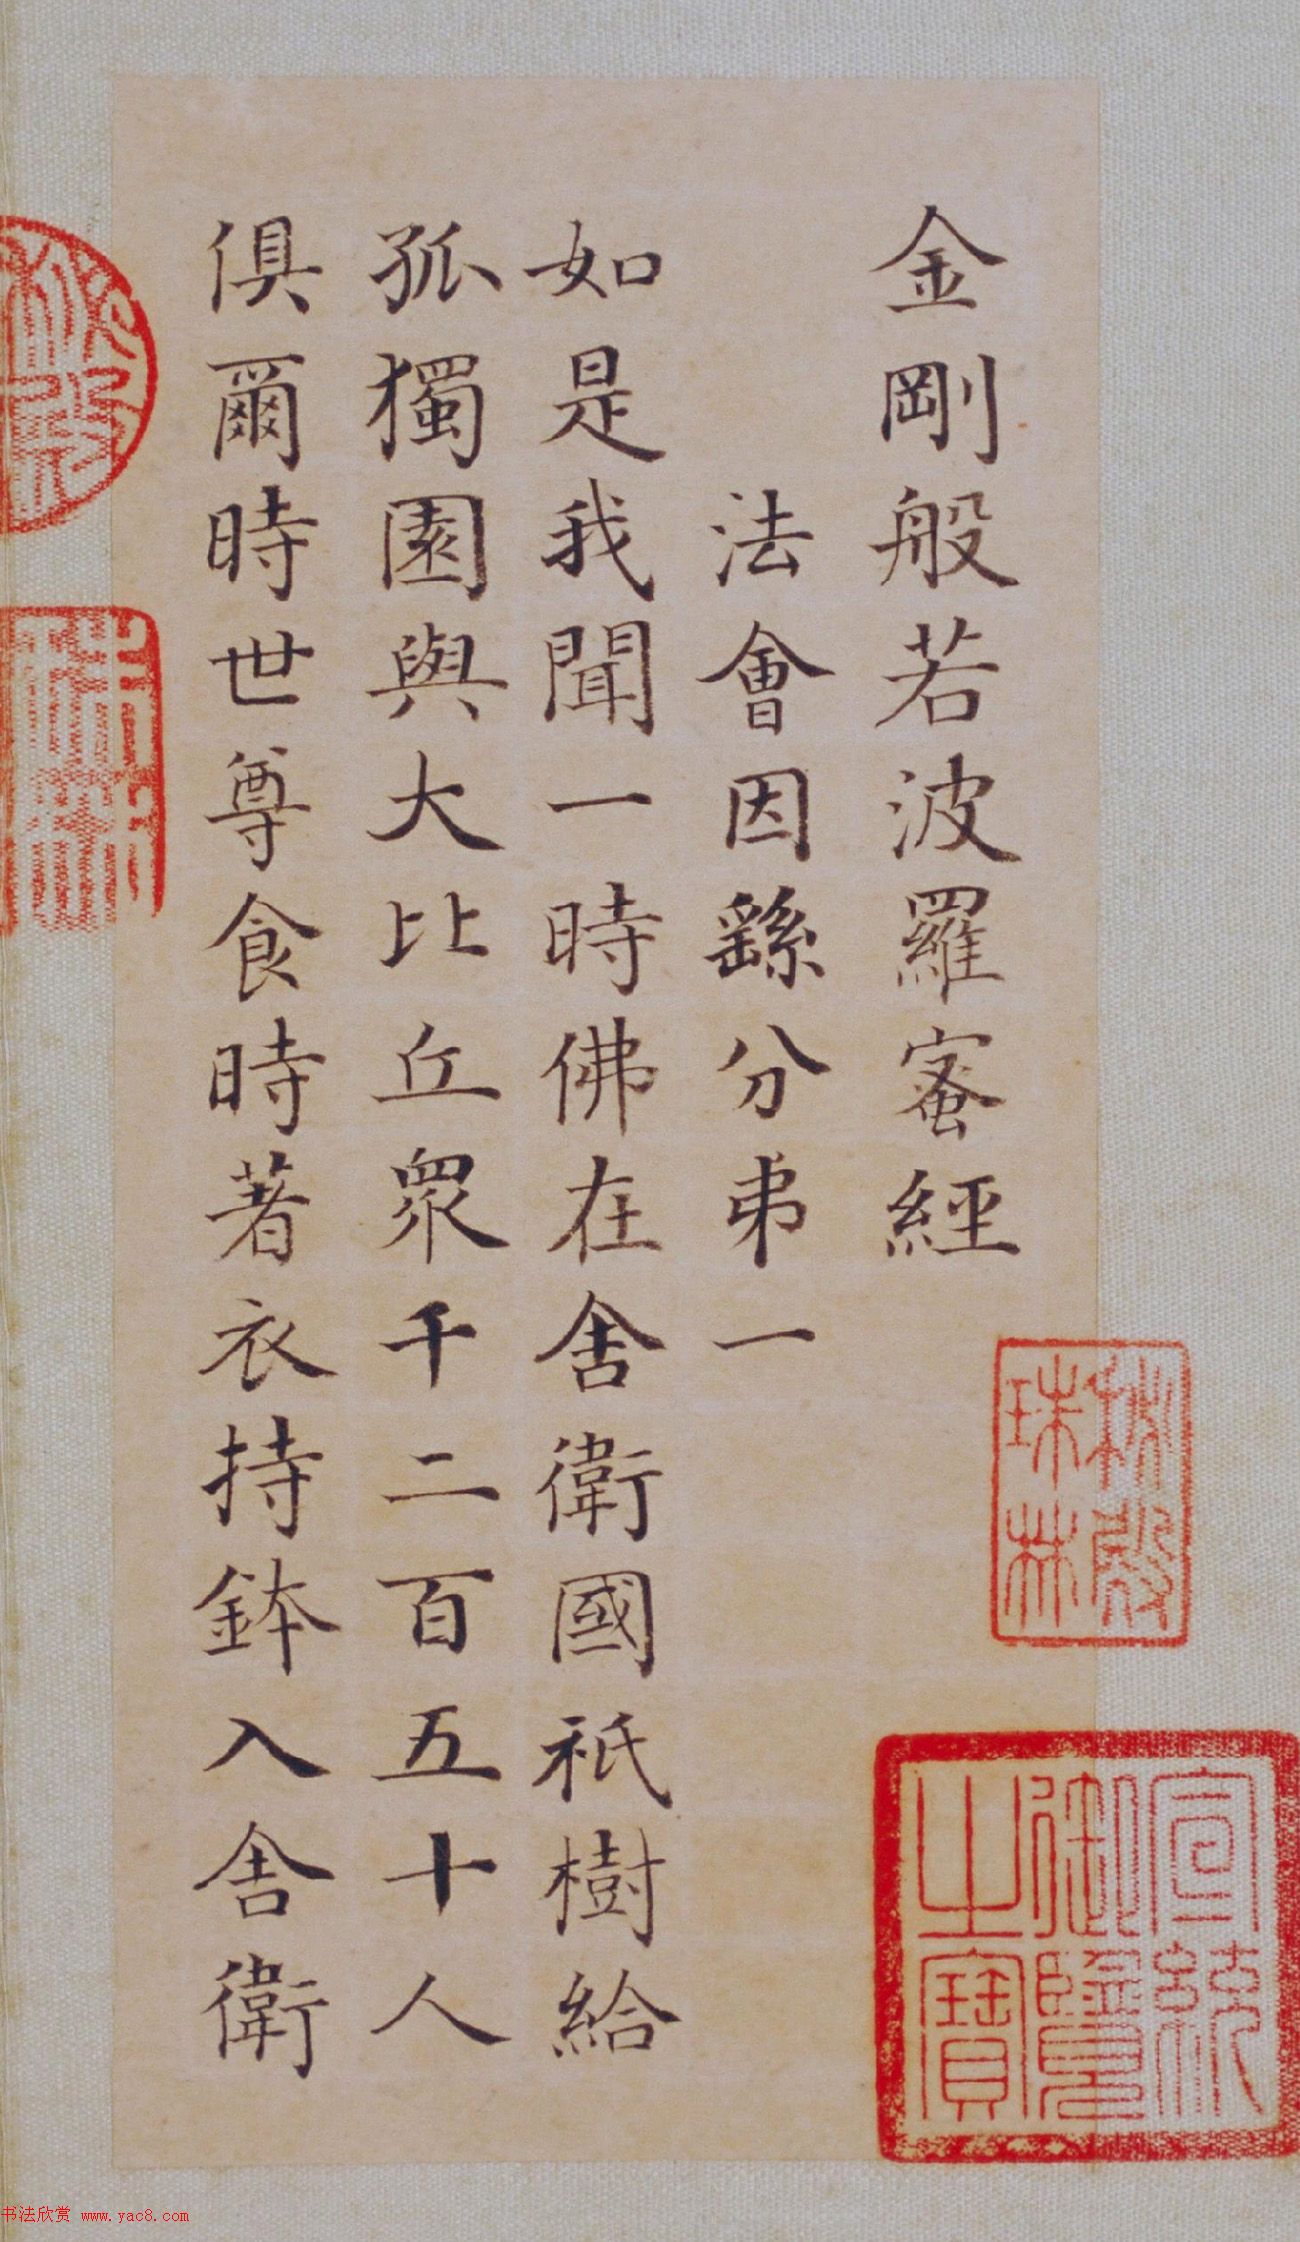 金剛般若波羅蜜經
法會因繇分弟一
如是我聞一時佛在舍衛國祇樹給
孤獨園與大比丘眾千二百五十人
俱爾時世尊食時著衣持鉢入舍衛
秘殿
珠林
宣統
御覽
之寶
书法欣赏 www.yac8.com